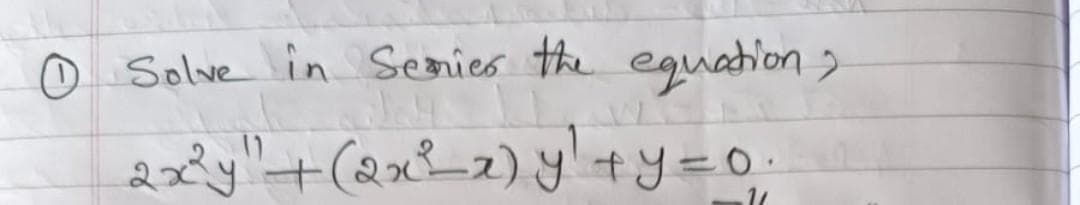 ① Solve in Series the equation,
2x²y" + (2x²-x) y' + y = 0.